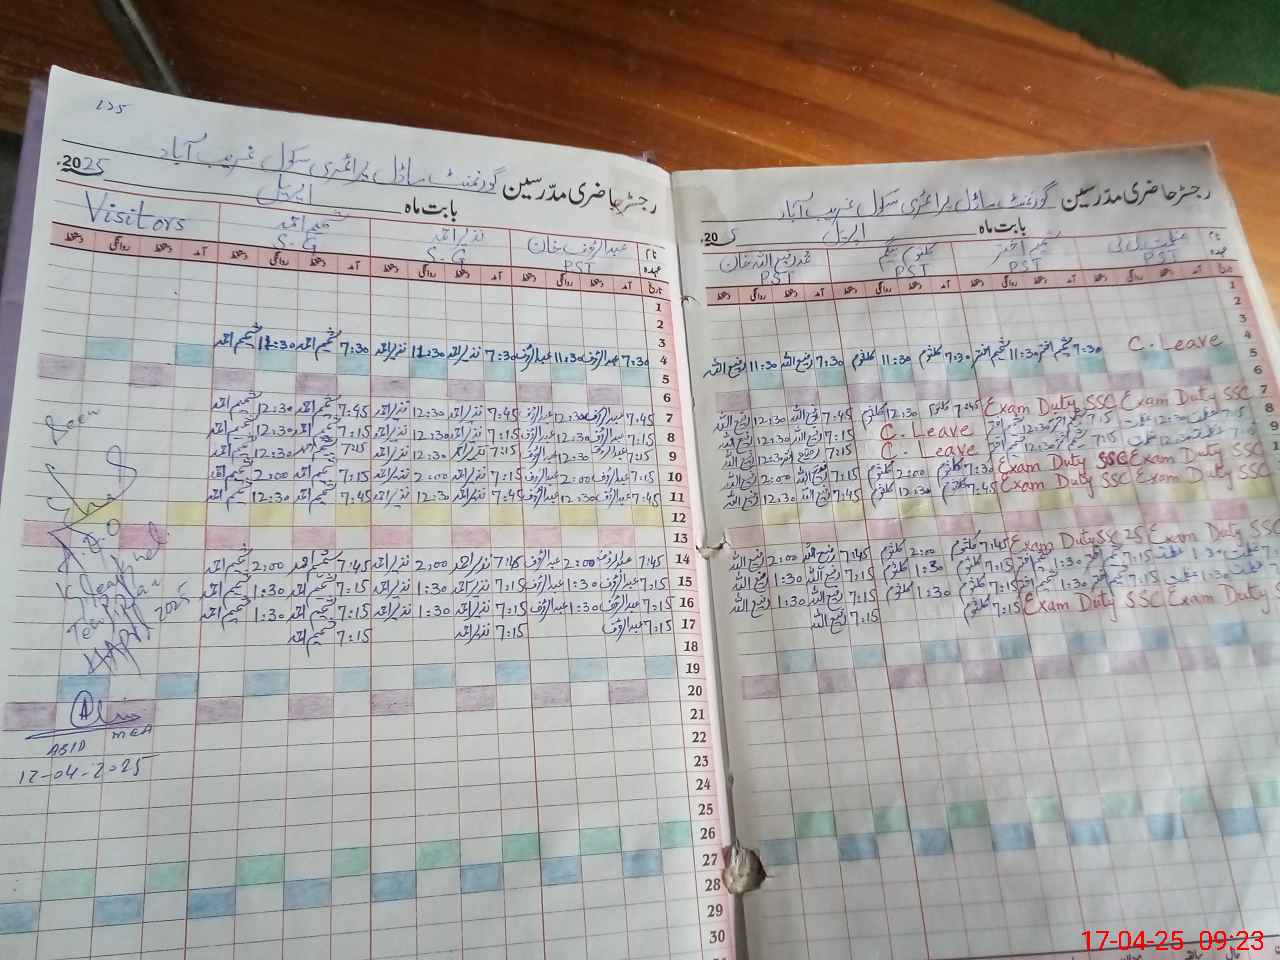 125
رجسٹر حاضری مدرسین گورنمنٹ ماڈل پرائمری سکول غریب آباد
بابت ماہ اپریل 2025
نام عبدالرؤف خان نذیر احمد شمیم احمد Visitors
عہدہ PST S.G S.G
تاریخ آمد دستخط روانگی دستخط آمد دستخط روانگی دستخط آمد دستخط روانگی دستخط روانگی دستخط
1
2
3
4 7:30 عبدالرؤف 11:30 عبدالرؤف 7:30 نذیر احمد 11:30 نذیر احمد 7:30 شمیم احمد 11:30 شمیم احمد
5
6
7 7:45 عبدالرؤف 12:30 عبدالرؤف 7:45 نذیر احمد 12:30 نذیر احمد 7:45 شمیم احمد 12:30 شمیم احمد
8 7:15 عبدالرؤف 12:30 عبدالرؤف 7:15 نذیر احمد 12:30 نذیر احمد 7:15 شمیم احمد 12:30 شمیم احمد
9 7:15 عبدالرؤف 12:30 عبدالرؤف 7:15 نذیر احمد 12:30 نذیر احمد 7:15 شمیم احمد 12:30 شمیم احمد
10 7:15 عبدالرؤف 2:00 عبدالرؤف 7:15 نذیر احمد 2:00 نذیر احمد 7:15 شمیم احمد 2:00 شمیم احمد
11 7:45 عبدالرؤف 12:30 عبدالرؤف 7:45 نذیر احمد 12:30 نذیر احمد 7:45 شمیم احمد 12:30 شمیم احمد
12
13
14 7:45 عبدالرؤف 2:00 عبدالرؤف 7:45 نذیر احمد 2:00 نذیر احمد 7:45 شمیم احمد 2:00 شمیم احمد
15 7:15 عبدالرؤف 1:30 عبدالرؤف 7:15 نذیر احمد 1:30 نذیر احمد 7:15 شمیم احمد 1:30 شمیم احمد
16 7:15 عبدالرؤف 1:30 عبدالرؤف 7:15 نذیر احمد 1:30 نذیر احمد 7:15 شمیم احمد 1:30 شمیم احمد
17 7:15 عبدالرؤف 7:15 نذیر احمد 7:15 شمیم احمد
18
19
20
21
22
23
24
25
26
27
28
29
30
Seen
2025
ABID MEA
17-04-2025
رجسٹر حاضری مدرسین گورنمنٹ ماڈل پرائمری سکول غریب آباد
بابت ماہ اپریل 20
نام شمیم اختر کلثوم بیگم
عہدہ PST PST PST PST
تاریخ
1
2
3
4 C. Leave 7:30 شمیم اختر 11:30 شمیم اختر 7:30 کلثوم 11:30 کلثوم 7:30 رفیع اللہ 11:30 رفیع اللہ
5
6
7 Exam Duty SSC Exam Duty SSC 7:45 کلثوم 12:30 کلثوم 7:45 رفیع اللہ 12:30 رفیع اللہ
8 7:15 12:30 7:15 12:30 C. Leave 7:15 رفیع اللہ 12:30 رفیع اللہ
9 7:15 12:30 7:15 12:30 C. Leave 7:15 رفیع اللہ 12:30 رفیع اللہ
Exam Duty SSC Exam Duty SSC 7:30 کلثوم 2:00 کلثوم 7:15 رفیع اللہ 2:00 رفیع اللہ
Exam Duty SSC Exam Duty SSC 7:45 کلثوم 12:30 کلثوم 7:45 رفیع اللہ 12:30 رفیع اللہ
Exam Duty SSC Exam Duty SSC 25 7:45 کلثوم 2:00 کلثوم 7:45 رفیع اللہ 2:00 رفیع اللہ
7:15 1:30 7:15 1:30 7:15 کلثوم 1:30 کلثوم 7:15 رفیع اللہ 1:30 رفیع اللہ
7:15 1:30 7:15 1:30 7:15 کلثوم 1:30 کلثوم 7:15 رفیع اللہ 1:30 رفیع اللہ
Exam Duty SSC Exam Duty SSC 7:15 کلثوم 7:15 رفیع اللہ
17-04-25 09:23